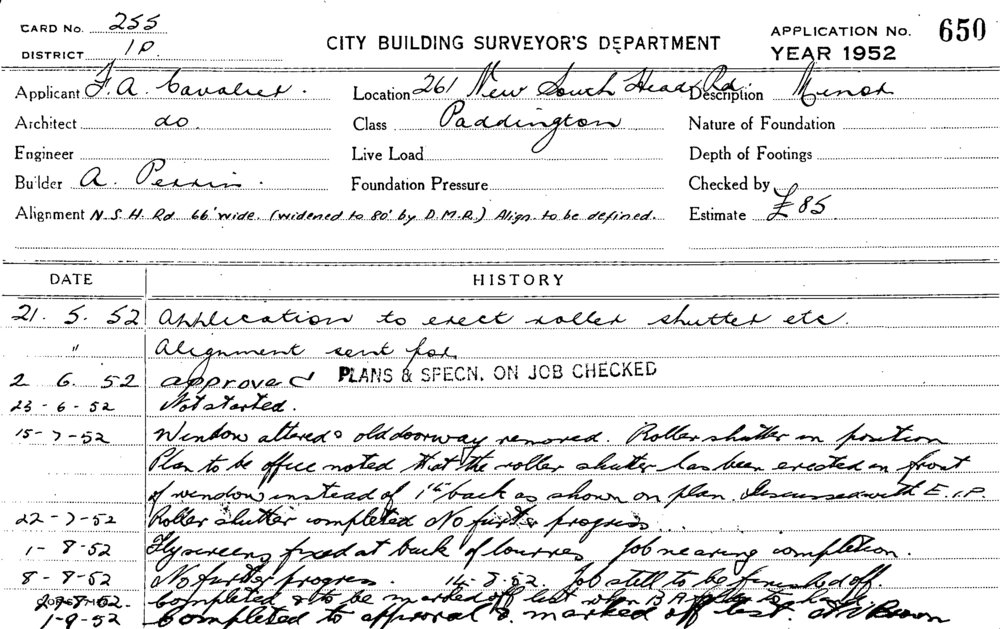 CARD No. 255
DISTRICT 1P.
CITY BUILDING SURVEYOR'S DEPARTMENT
APPLICATION No. 650
YEAR 1952
Applicant F. A. Cavalier. Location 261 New South Head Rd. Description Minor
Architect do. Class Paddington Nature of Foundation
Engineer Live Load Depth of Footings
Builder A. Perrin. Foundation Pressure Checked by
Alignment N.S.H. Rd 66' wide. (widened to 80' by D.M.R.) Align. to be defined. Estimate £85
DATE HISTORY
21. 5. 52 Application to erect roller shutter etc.
" Alignment sent for
2 6. 52 approved PLANS & SPECN. ON JOB CHECKED
23-6-52 Not started.
15-7-52 Window altered & old doorway removed. Roller shutter in position
Plan to be office noted that the roller shutter has been erected on front
of window instead of back as shown on plan. Discussed with E.
22-7-52 Roller shutter completed No further progress
1-8-52 Flyscreens fixed at back of louvres Job nearing completion.
8-8-52 No further progress. 14-8-52. Job still to be finished off.
Completed & to be marked off last when B.A.
1-9-52 Completed to approval & marked off last. Brown